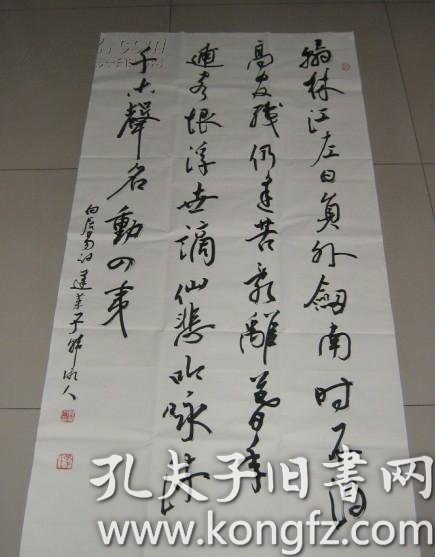 翰林江左日員外劍南時不得
高官職仍逢苦亂離暮年
逋客恨浮世謫仙悲吟詠流
千古聲名動四夷
白居易詩蓬莱子
孔夫子旧書网
www.kongfz.com